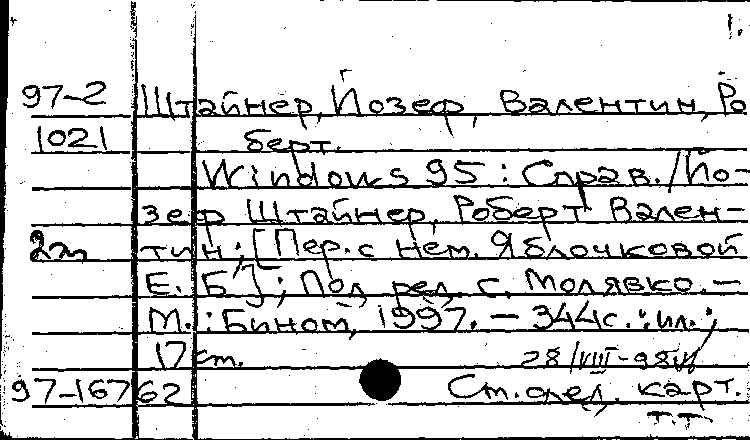 1.
97-2 Штайнер, Йозеф, Валентин, Ро
1021 берт.
Windows 95 : Справ. / Йо-
зеф Штайнер, Роберт Вален-
2э тин ; [Пер. с нем. Яблочковой
Е. Б.] ; Под ред. С. Молявко. –
М. : Бином, 1997. – 344с. : ил. ;
17 см.
28/VIII-98
97-16762 См. след. карт.
т.т.